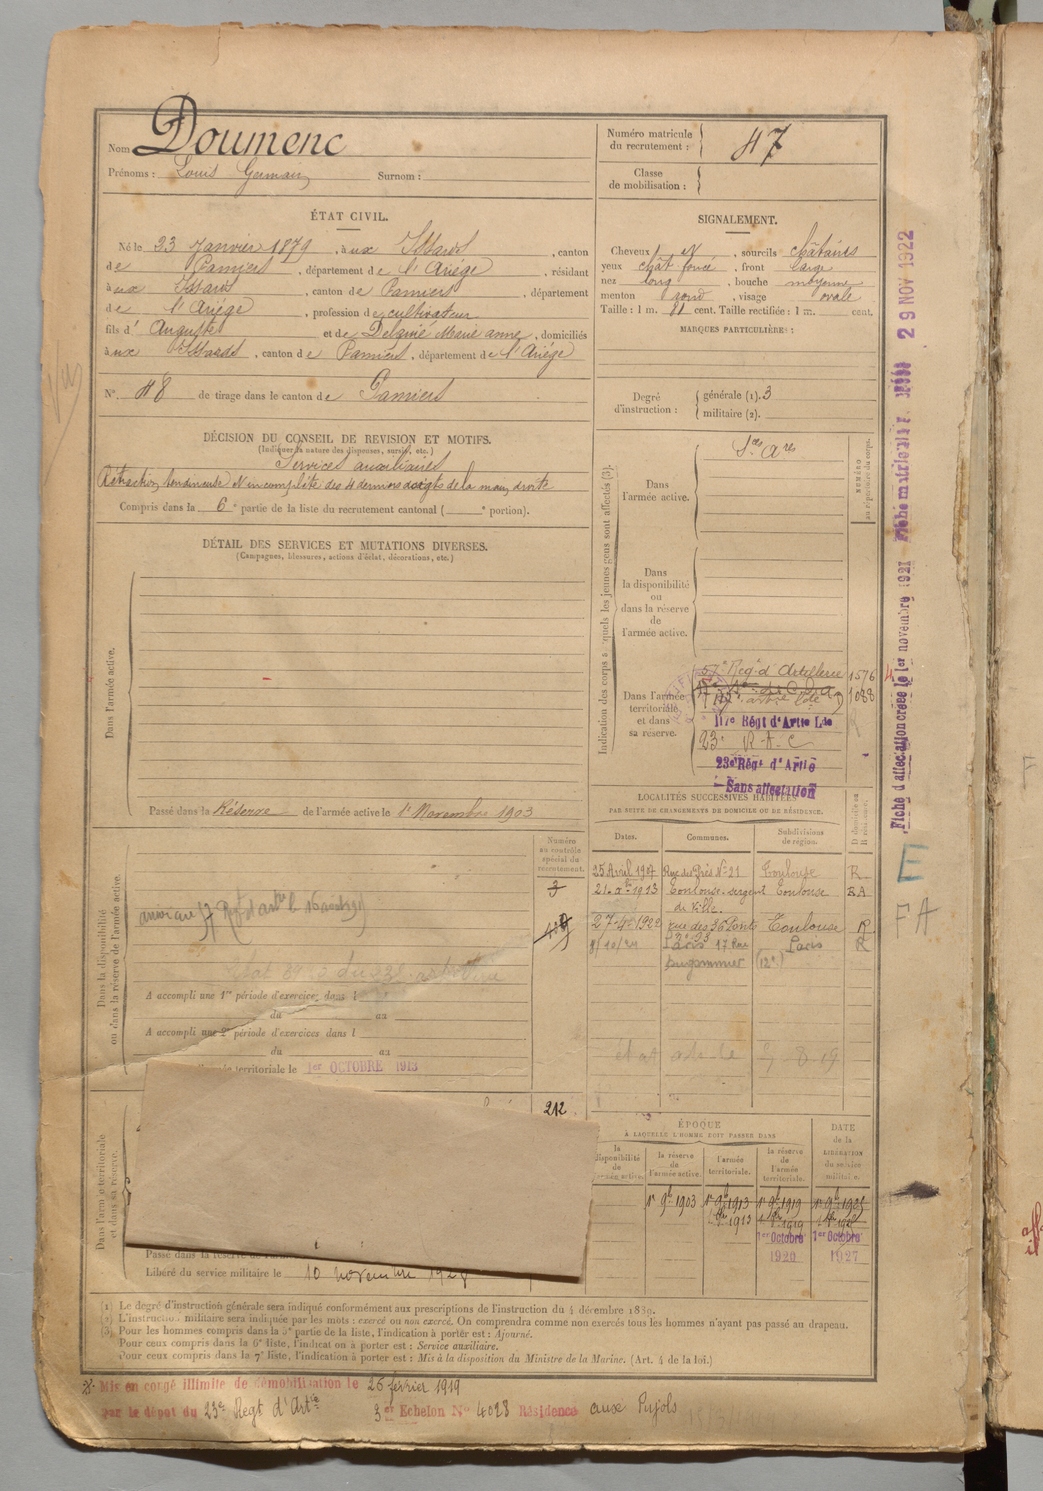 Nom Doumenc
Prénoms : Louis Germain Surnom :
Numéro matricule du recrutement : 47
Classe de mobilisation :
ÉTAT CIVIL.
Né le 23 Janvier 1879, à ux Issards, canton
de Pamiers, département de l'Ariége, résidant
à ux Issards, canton de Pamiers, département
de l'Ariége, profession de cultivateur
fils d' Auguste et de Marie anne, domiciliés
à ux Issards, canton de Pamiers, département de l'Ariége
N° 48 de tirage dans le canton de Pamiers
SIGNALEMENT.
Cheveux N, sourcils châtains
yeux chât foncé, front large
nez long, bouche moyenne
menton rond, visage ovale
Taille : 1 m. 81 cent. Taille rectifiée : 1 m. cent.
MARQUES PARTICULIÈRES :
Degré d'instruction : générale (1). 3
militaire (2).
DÉCISION DU CONSEIL DE REVISION ET MOTIFS.
(Indiquer la nature des dispenses, sursis, etc.)
Services auxiliaires
Rétraction tendineuse incomplète des 4 derniers doigts de la main droite
Compris dans la 6e partie de la liste du recrutement cantonal ( e portion).
DÉTAIL DES SERVICES ET MUTATIONS DIVERSES.
(Campagnes, blessures, actions d'éclat, décorations, etc.)
Dans l'armée active.
Passé dans la Réserve de l'armée active le 1er Novembre 1903
Indication des corps auxquels les jeunes gens sont affectés (3).
NUMÉRO au répertoire du corps.
Dans l'armée active. Sces Ares
Dans la disponibilité ou dans la réserve de l'armée active.
Dans l'armée territoriale et dans sa réserve.
57e Reg-d'Artillerie 1576
1088
117e Régt d'Artie Lde
23e R.A.C
23e Régt d'Artie
Sans affectation
LOCALITÉS SUCCESSIVES HABITÉES
PAR SUITE DE CHANGEMENTS DE DOMICILE OU DE RÉSIDENCE.
Dates. Communes. Subdivisions de région. D domicile ou R résidence.
25 Avril 1907 Rue des Prés N° 21 Toulouse R
1913 Toulouse-sergent de ville. Toulouse RA
27-4e 1920 rue des 36 Ponts Toulouse R
8/10/21 Paris 17 Rue Dugommier (12e) Paris R
Numéro au contrôle spécial du recrutement.
212
Dans la disponibilité ou dans la réserve de l'armée active.
A accompli une 1re période d'exercices dans l
du au
A accompli une 2e période d'exercices dans l
du au
territoriale le 1er OCTOBRE 1913
Dans l'armée territoriale et dans sa réserve.
Passé dans la réserve de l'armée
Libéré du service militaire le 10 novembre 1928
ÉPOQUE
À LAQUELLE L'HOMME DOIT PASSER DANS
la disponibilité de l'armée active.
la réserve de l'armée active.
l'armée territoriale.
la réserve de l'armée territoriale.
DATE de la LIBÉRATION du service militaire.
1er 9bre 1903 1er 9bre 1913 1er 9bre 1919 1er 9bre 1925
1913 1919
1er Octobre 1920 1er Octobre 1927
(1) Le degré d'instruction générale sera indiqué conformément aux prescriptions de l'instruction du 4 décembre 1889.
(2) L'instruction militaire sera indiquée par les mots : exercé ou non exercé. On comprendra comme non exercés tous les hommes n'ayant pas passé au drapeau.
(3) Pour les hommes compris dans la 5e partie de la liste, l'indication à porter est : Ajourné.
Pour ceux compris dans la 6e liste, l'indication à porter est : Service auxiliaire.
Pour ceux compris dans la 7e liste, l'indication à porter est : Mis à la disposition du Ministre de la Marine. (Art. 4 de la loi.)
Mis en congé illimité de démobilisation le 26 février 1919
par le dépôt du 23e Regt d'Artie 3e Echelon N° 4028 Résidence aux Pujols
Fiche d'affectation créée le 1er novembre 1921
29 NOV 1922
E
FA